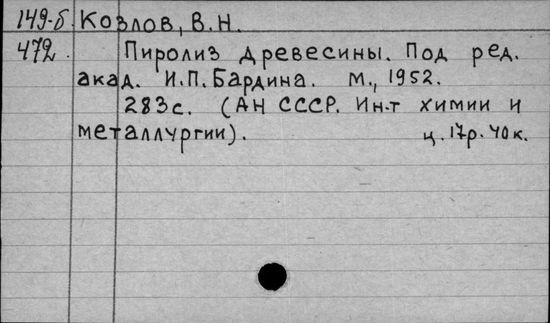 149-б. Козлов, В.Н.
472. Пиролиз древесины. Под ред.
акад. И.П. Бардина. М., 1952.
283с. (АН СССР. Ин-т химии и
металлургии). ц. 17р. 40к.